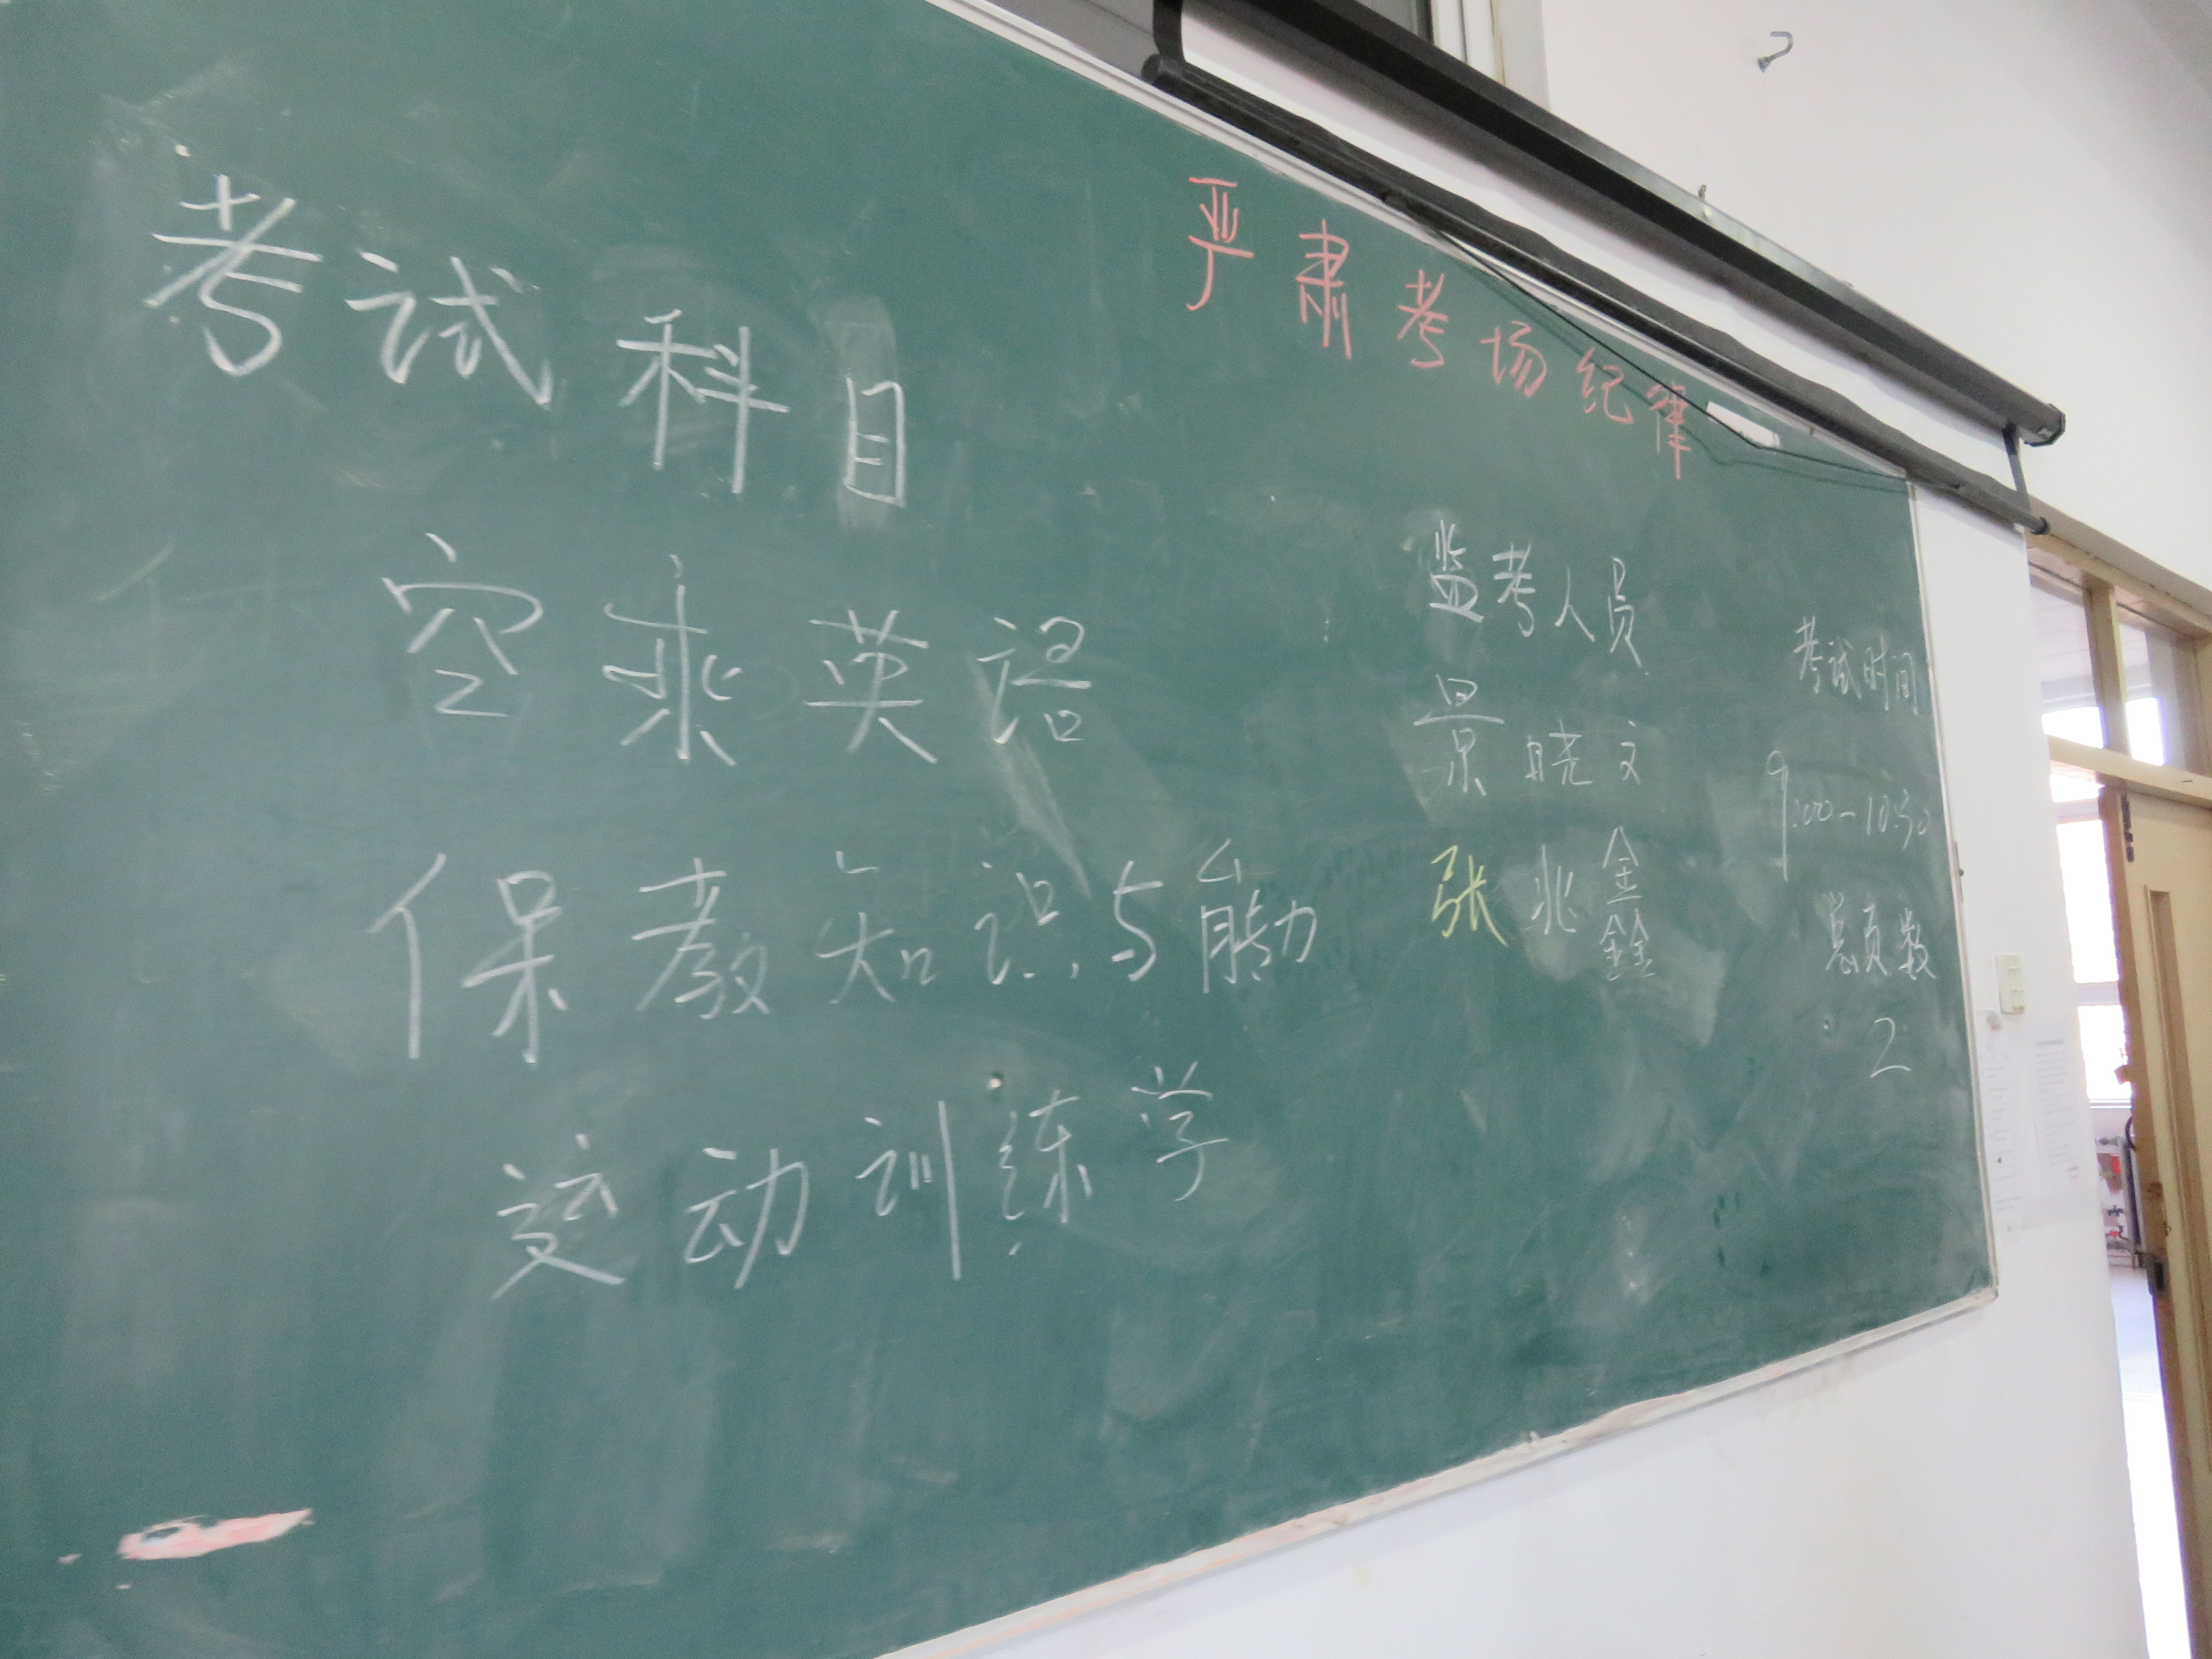 严肃考场纪律
考试科目
空乘英语
保教知识与能力
运动训练学
监考人员
景晓文
张兆鑫
考试时间
9:00-10:30
总页数
2